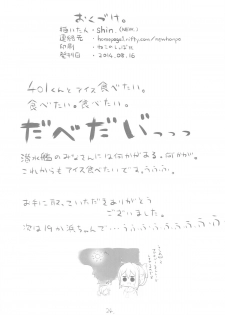 おくづけ。
描いたん・shin.(NEW.)
連絡先・homepage1.nifty.com/newtonpe
印刷・ねこのしっぽ
発行日・2014.08.16
401くんとアイス食べたい。
食べたい。食べたい。
だべだいっっっ
潜水艦のみなさんには何かがある。何かが。
これからもアイス食べたいです。うふふ。
お手に取っていただきありがとう
ございました。
次は19か浜ちゃんで…うふふふ、ふ、ふ、ふ、ふ、ふ
26